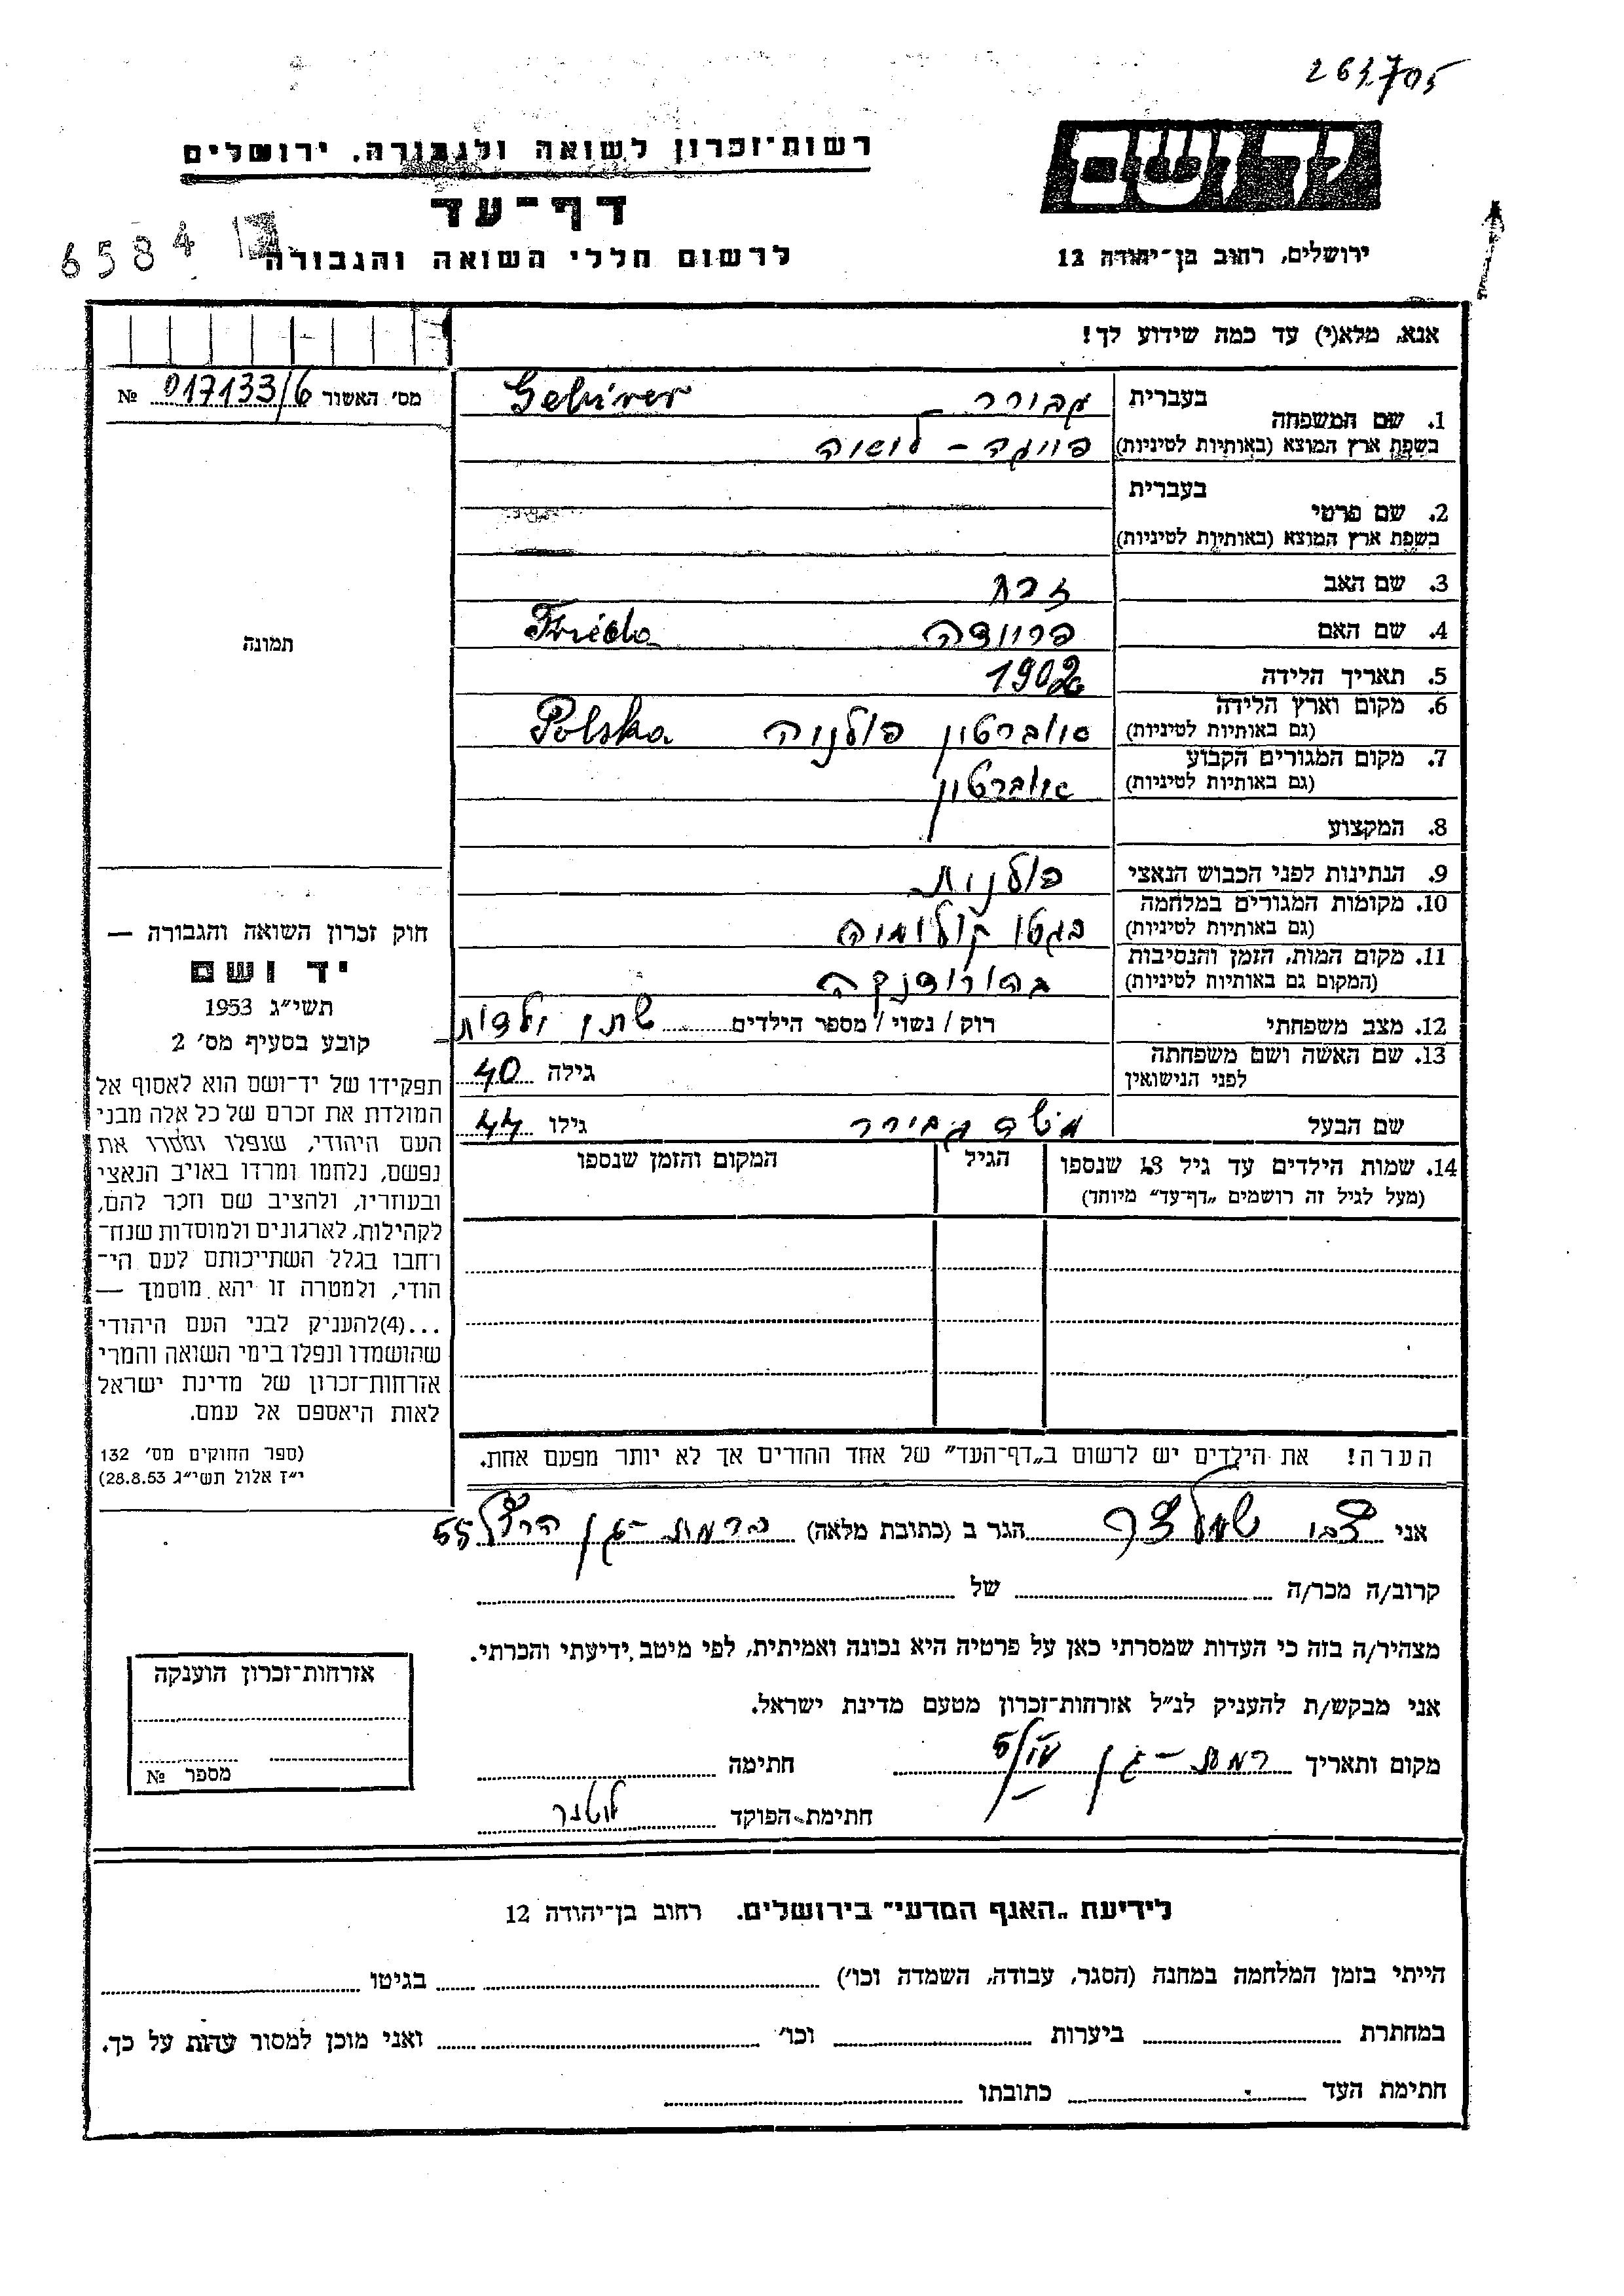 263705
רשות־זכרון לשואה ולגבורה, ירושלים
יד ושם
דף־עד
6584
לרשום חללי השואה והגבורה
ירושלים, רחוב בן־יהודה 12
אנא, מלא(י) עד כמה שידוע לך!
מס׳ האשור 017133/6 №
בעברית
1. שם המשפחה
בשפת ארץ המוצא (באותיות לטיניות)
Gebirer
בעברית
2. שם פרטי
בשפת ארץ המוצא (באותיות לטיניות)
3. שם האב
4. שם האם Frieda
5. תאריך הלידה 1902
6. מקום וארץ הלידה
(גם באותיות לטיניות) פולניה Polska
7. מקום המגורים הקבוע
(גם באותיות לטיניות)
8. המקצוע
9. הנתינות לפני הכבוש הנאצי פולנית
10. מקומות המגורים במלחמה
(גם באותיות לטיניות) בגטו קולומיה
11. מקום המות, הזמן והנסיבות
(המקום גם באותיות לטיניות) בהורודנקה
12. מצב משפחתי רוק / נשוי / מספר הילדים שתי ילדות
13. שם האשה ושם משפחתה
לפני הנישואין גילה 40
שם הבעל גבירר גילו 44
14. שמות הילדים עד גיל 18 שנספו הגיל המקום והזמן שנספו
(מעל לגיל זה רושמים „דף־עד״ מיוחד)
תמונה
חוק זכרון השואה והגבורה —
יד ושם
תשי״ג 1953
קובע בסעיף מס׳ 2
תפקידו של יד־ושם הוא לאסוף אל
המולדת את זכרם של כל אלה מבני
העם היהודי, שנפלו ומסרו את
נפשם, נלחמו ומרדו באויב הנאצי
ובעוזריו, ולהציב שם וזכר להם,
לקהילות, לארגונים ולמוסדות שנח־
רחבו בגלל השתייכותם לעם הי־
הודי, ולמטרה זו יהא מוסמך —
...(4)להעניק לבני העם היהודי
שהושמדו ונפלו בימי השואה והמרי
אזרחות־זכרון של מדינת ישראל
לאות היאספם אל עמם.
(ספר החוקים מס׳ 132
י״ז אלול תשי״ג 28.8.53)
הערה! את הילדים יש לרשום ב„דף־העד״ של אחד ההורים אך לא יותר מפעם אחת.
אני צבי הגר ב (כתובת מלאה) ברמת־גן הרצל 55
קרוב/ה מכר/ה של
מצהיר/ה בזה כי העדות שמסרתי כאן על פרטיה היא נכונה ואמיתית, לפי מיטב ידיעתי והכרתי.
אני מבקש/ת להעניק לנ״ל אזרחות־זכרון מטעם מדינת ישראל.
מקום ותאריך רמת־גן חתימה
חתימת הפוקד
אזרחות־זכרון הוענקה
מספר №
לידיעת „האגף המדעי״ בירושלים. רחוב בן־יהודה 12
הייתי בזמן המלחמה במחנה (הסגר, עבודה, השמדה וכו׳) בגיטו
במחתרת ביערות וכו׳ ואני מוכן למסור עדות על כך.
חתימת העד כתובתו